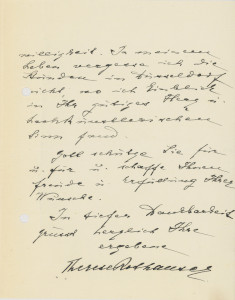 willigkeit. In meinem
Leben vergesse ich die
Stunden in Düsseldorf
nicht, wo ich Einblick
in Ihr gütiges Herz u.
hochkünstlerischen
Sinn fand.
Gott schütze Sie für
u. für u. schaffe Ihnen
Freude u. Erfüllung Ihrer
Wünsche.
In tiefer Dankbarkeit
grüsst herzlich Ihre
ergebene
Therese Rothauser